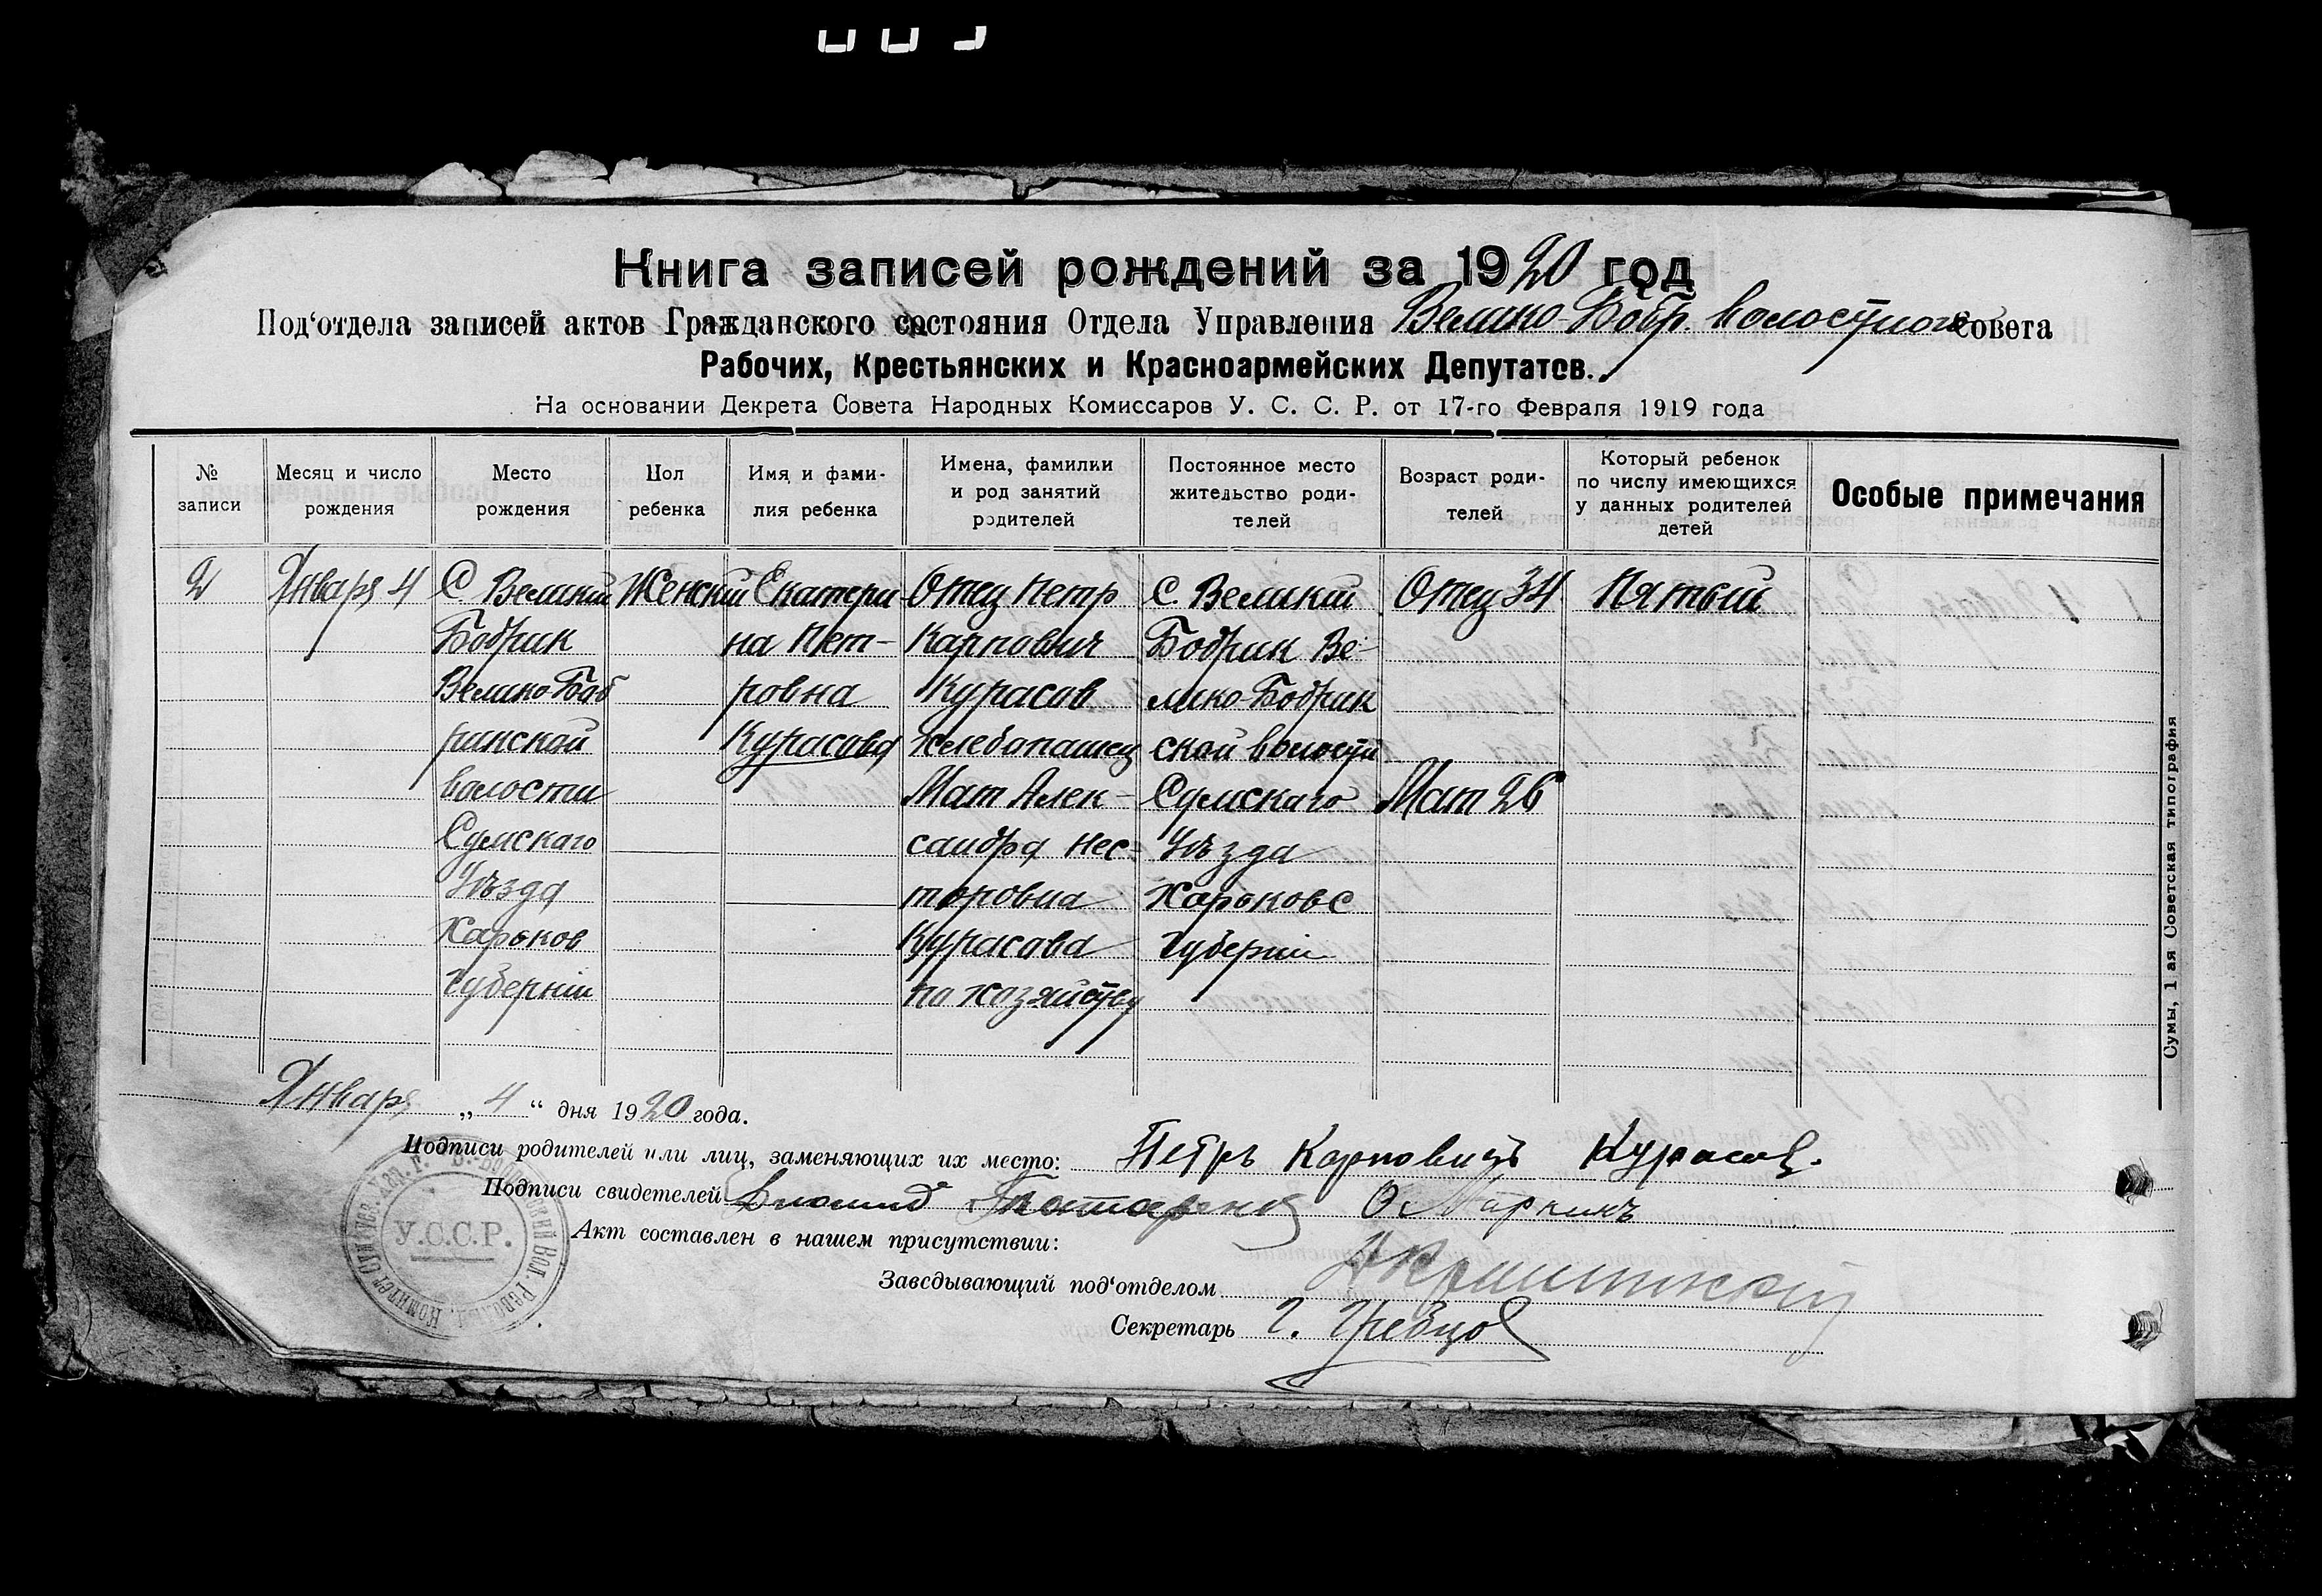 Книга записей рождений за 1920 год
Под‘отдела записей актов Гражданского состояния Отдела Управления Велико-Бобр. Волостного Совета
Рабочих, Крестьянских и Красноармейских Депутатов.
На основании Декрета Совета Народных Комиссаров У. С. С. Р. от 17-го Февраля 1919 года
№ записи
Месяц и число рождения
Место рождения
Пол ребенка
Имя и фами-
лия ребенка
Имена, фамилии
и род занятий
родителей
Постоянное место
жительство роди-
телей
Возраст роди-
телей
Который ребенок
по числу имеющихся
у данных родителей
детей
Особые примечания
2
Января 4
С. Великий
Бобрик
Велико-Боб
ринской
волости
Сумскаго
Уѣзда
Харьков
Губерніи
Женский
Екатери
на Пет-
ровна
Курасова
Отец Петр
Карпович
Курасов
Хлебопашец
Мат Алек-
сандра Нес-
торовна
Курасова
по хозяйству
С. Великий
Бобрик Ве-
лико-Бобрик
ской волости
Сумскаго
Уѣзда
Харьковс
Губерніи
Отец 34
Мат 26
Пятый
Января „ 4 “ дня 1920 года.
Подписи родителей или лиц, заменяющих их место: Петръ Карповичъ Курасов.
Подписи свидетелей
О. Маркинъ
Акт составлен в нашем присутствии:
Заведывающий под‘отделом
Секретарь Г. Гребцов
У.С.С.Р.
Сумы, 1 ая Советская типография